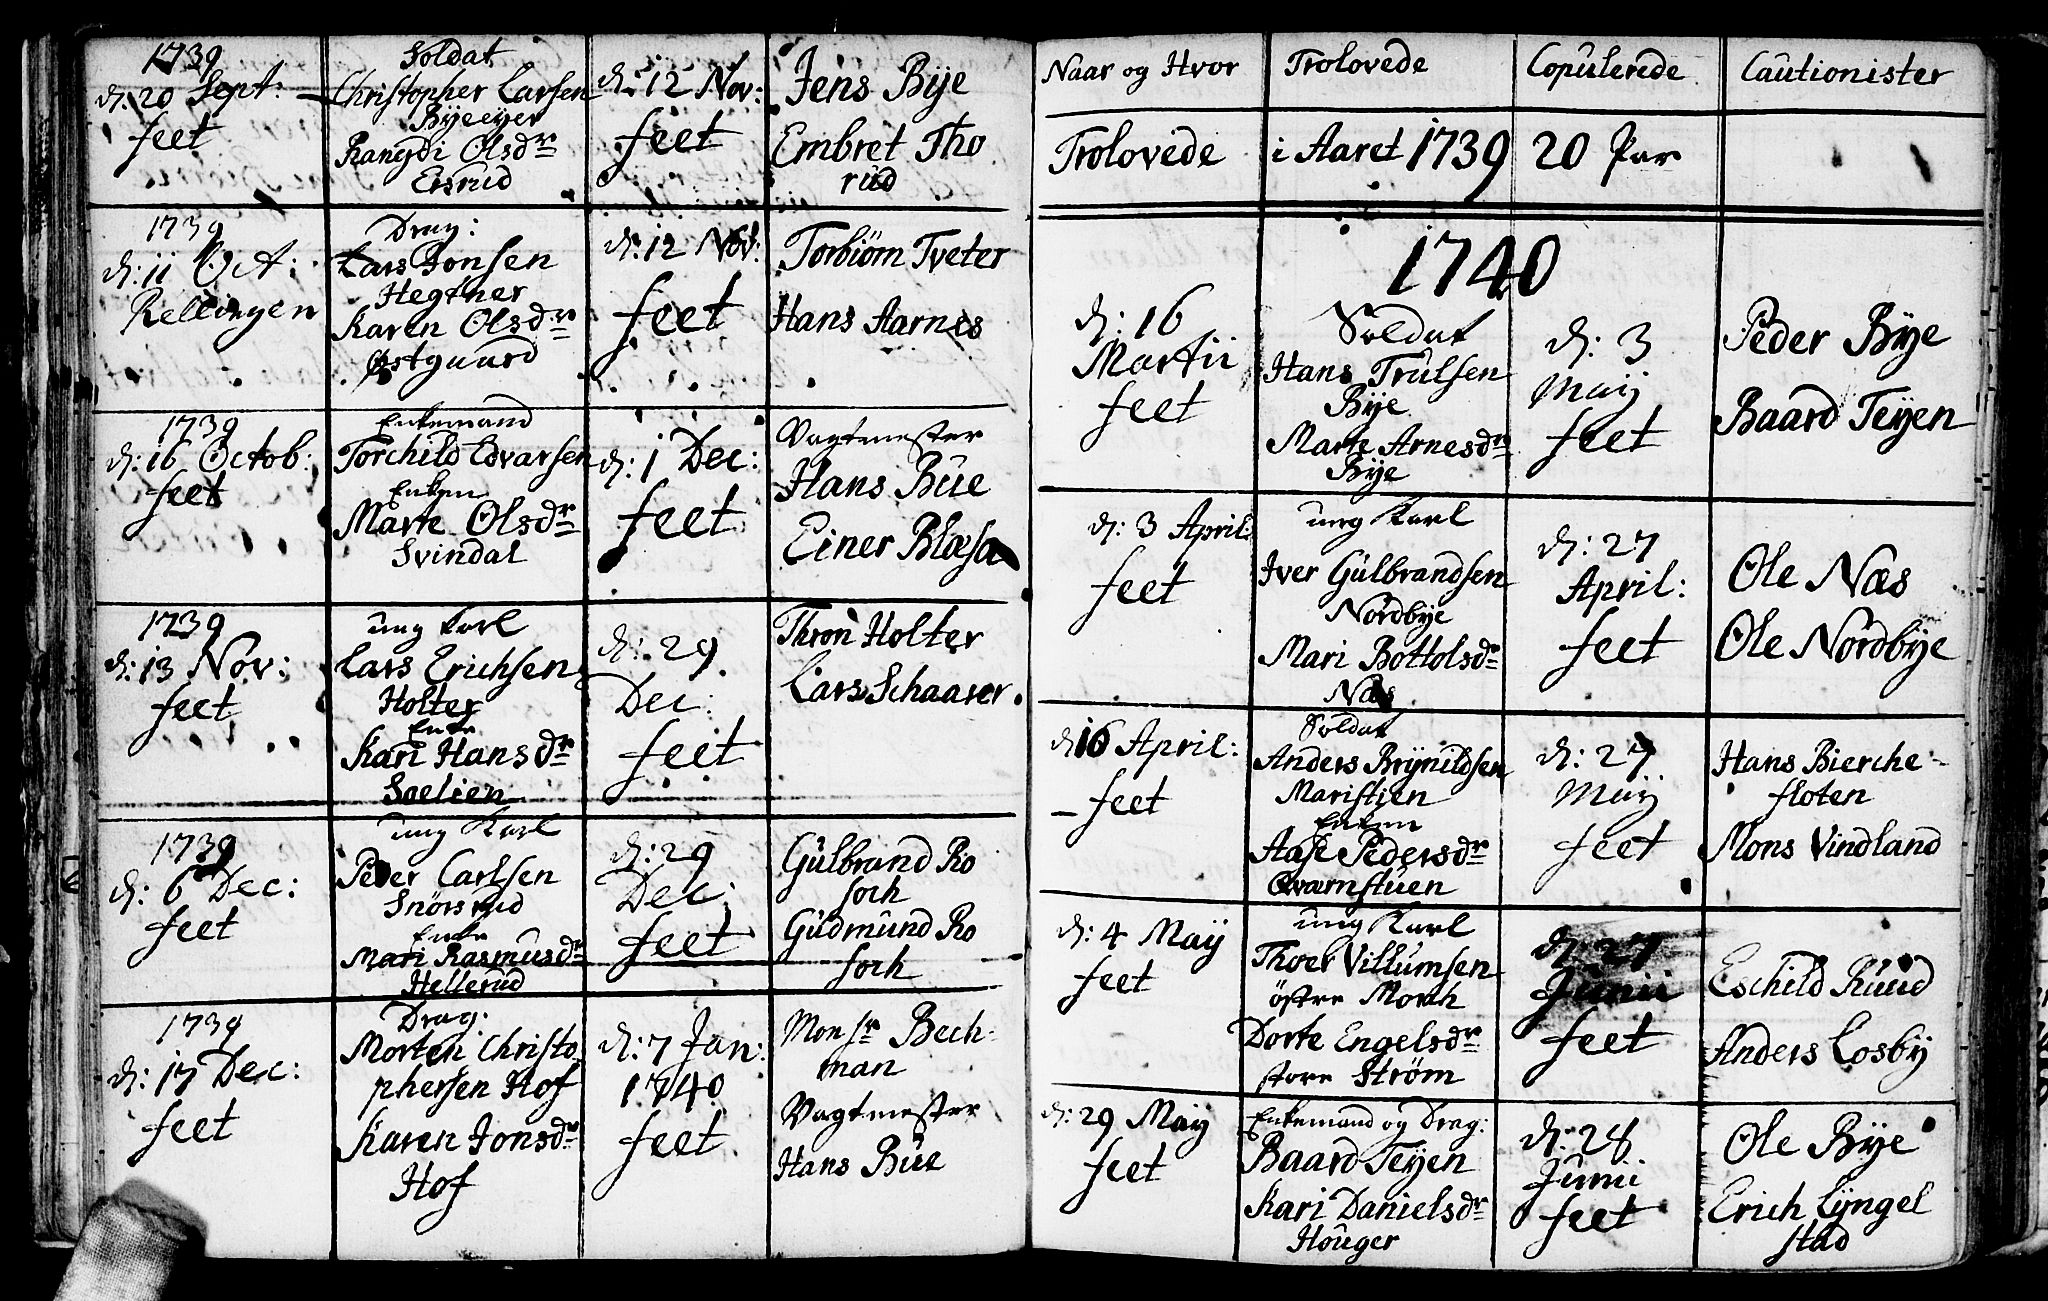 1739
d: 20 Sept:
feet
Soldat
Christopher Larsen
Byeeyer
Rangdi Olsdr
Eisrud
d: 12 Nov:
feet
Jens Bÿe
Embret Tho
rud
1739
d: 11 Oct:
Rellingen
Drag:
Lars Jonsen
Hegtner
Karen Olsdr
Østgaard
d: 12 Nov:
feet
Torbiørn Tveter
Hans Aarnes
1739
d: 16 Octob:
feet
Enkemand
Torchild Edvarsen
Enken
Marte Olsdr
Svindal
d: 1 Dec:
feet
Vagtmester
Hans Bue
Einer Blæsa
1739
d: 13 Nov:
feet
ung Karl
Lars Erichsen
Holter
Enke
Kari Hansdr
Soelien
d: 29
Dec:
feet
Thron Holter
Lars Schaarer
1739
d: 6 Dec:
feet
ung Karl
Peder Carlsen
Snörsrud
Enke
Mari Rasmusdr
Hellerud
d: 29
Dec:
feet
Gulbrand Ro
soch
Gudmund Ro
soch
1739
d: 17 Dec:
feet
Drag:
Morten Christo
phersen Hof
Karen Jonsdr
Hof
d: 7 Jan:
1740
feet
Monsr Bech-
man
Vagtmester
Hans Bue
Naar og Hvor
Trolovede
Copulerede
Cautionister
Trolovede i Aaret 1739 20 Par
1740
d: 16
Martii
feet
Soldat
Hans Trulsen
Bÿe
Marte Arnesdr
Bÿe
d: 3
Maÿ
feet
Peder Bÿe
Baard Teÿen
d: 3 April:
feet
ung Karl
Iver Gulbrandsen
Nordbÿe
Mari Bottolsdr
Næs
d: 27
April:
feet
Ole Næs
Ole Nordbÿe
d: 16 April:
feet
Soldat
Anders Brÿnildsen
Maristien
Enken
Aase Pedersdr
Qværnstuen
d: 27
Maÿ
feet
Hans Bierche-
floten
Mons Vindland
d: 4 Maÿ
feet
ung Karl
Thoer Villumsen
östre Morch
Dorte Engelsdr
store Strøm
d: 27
Junii
feet
Eschild Ruud
Anders Losbÿ
d: 29 Maÿ
feet
Enkemand og Drag:
Baard Teÿen
Kari Danielsdr
Houger
d: 28
Junii
feet
Ole Bÿe
Erich Lÿngel
stad